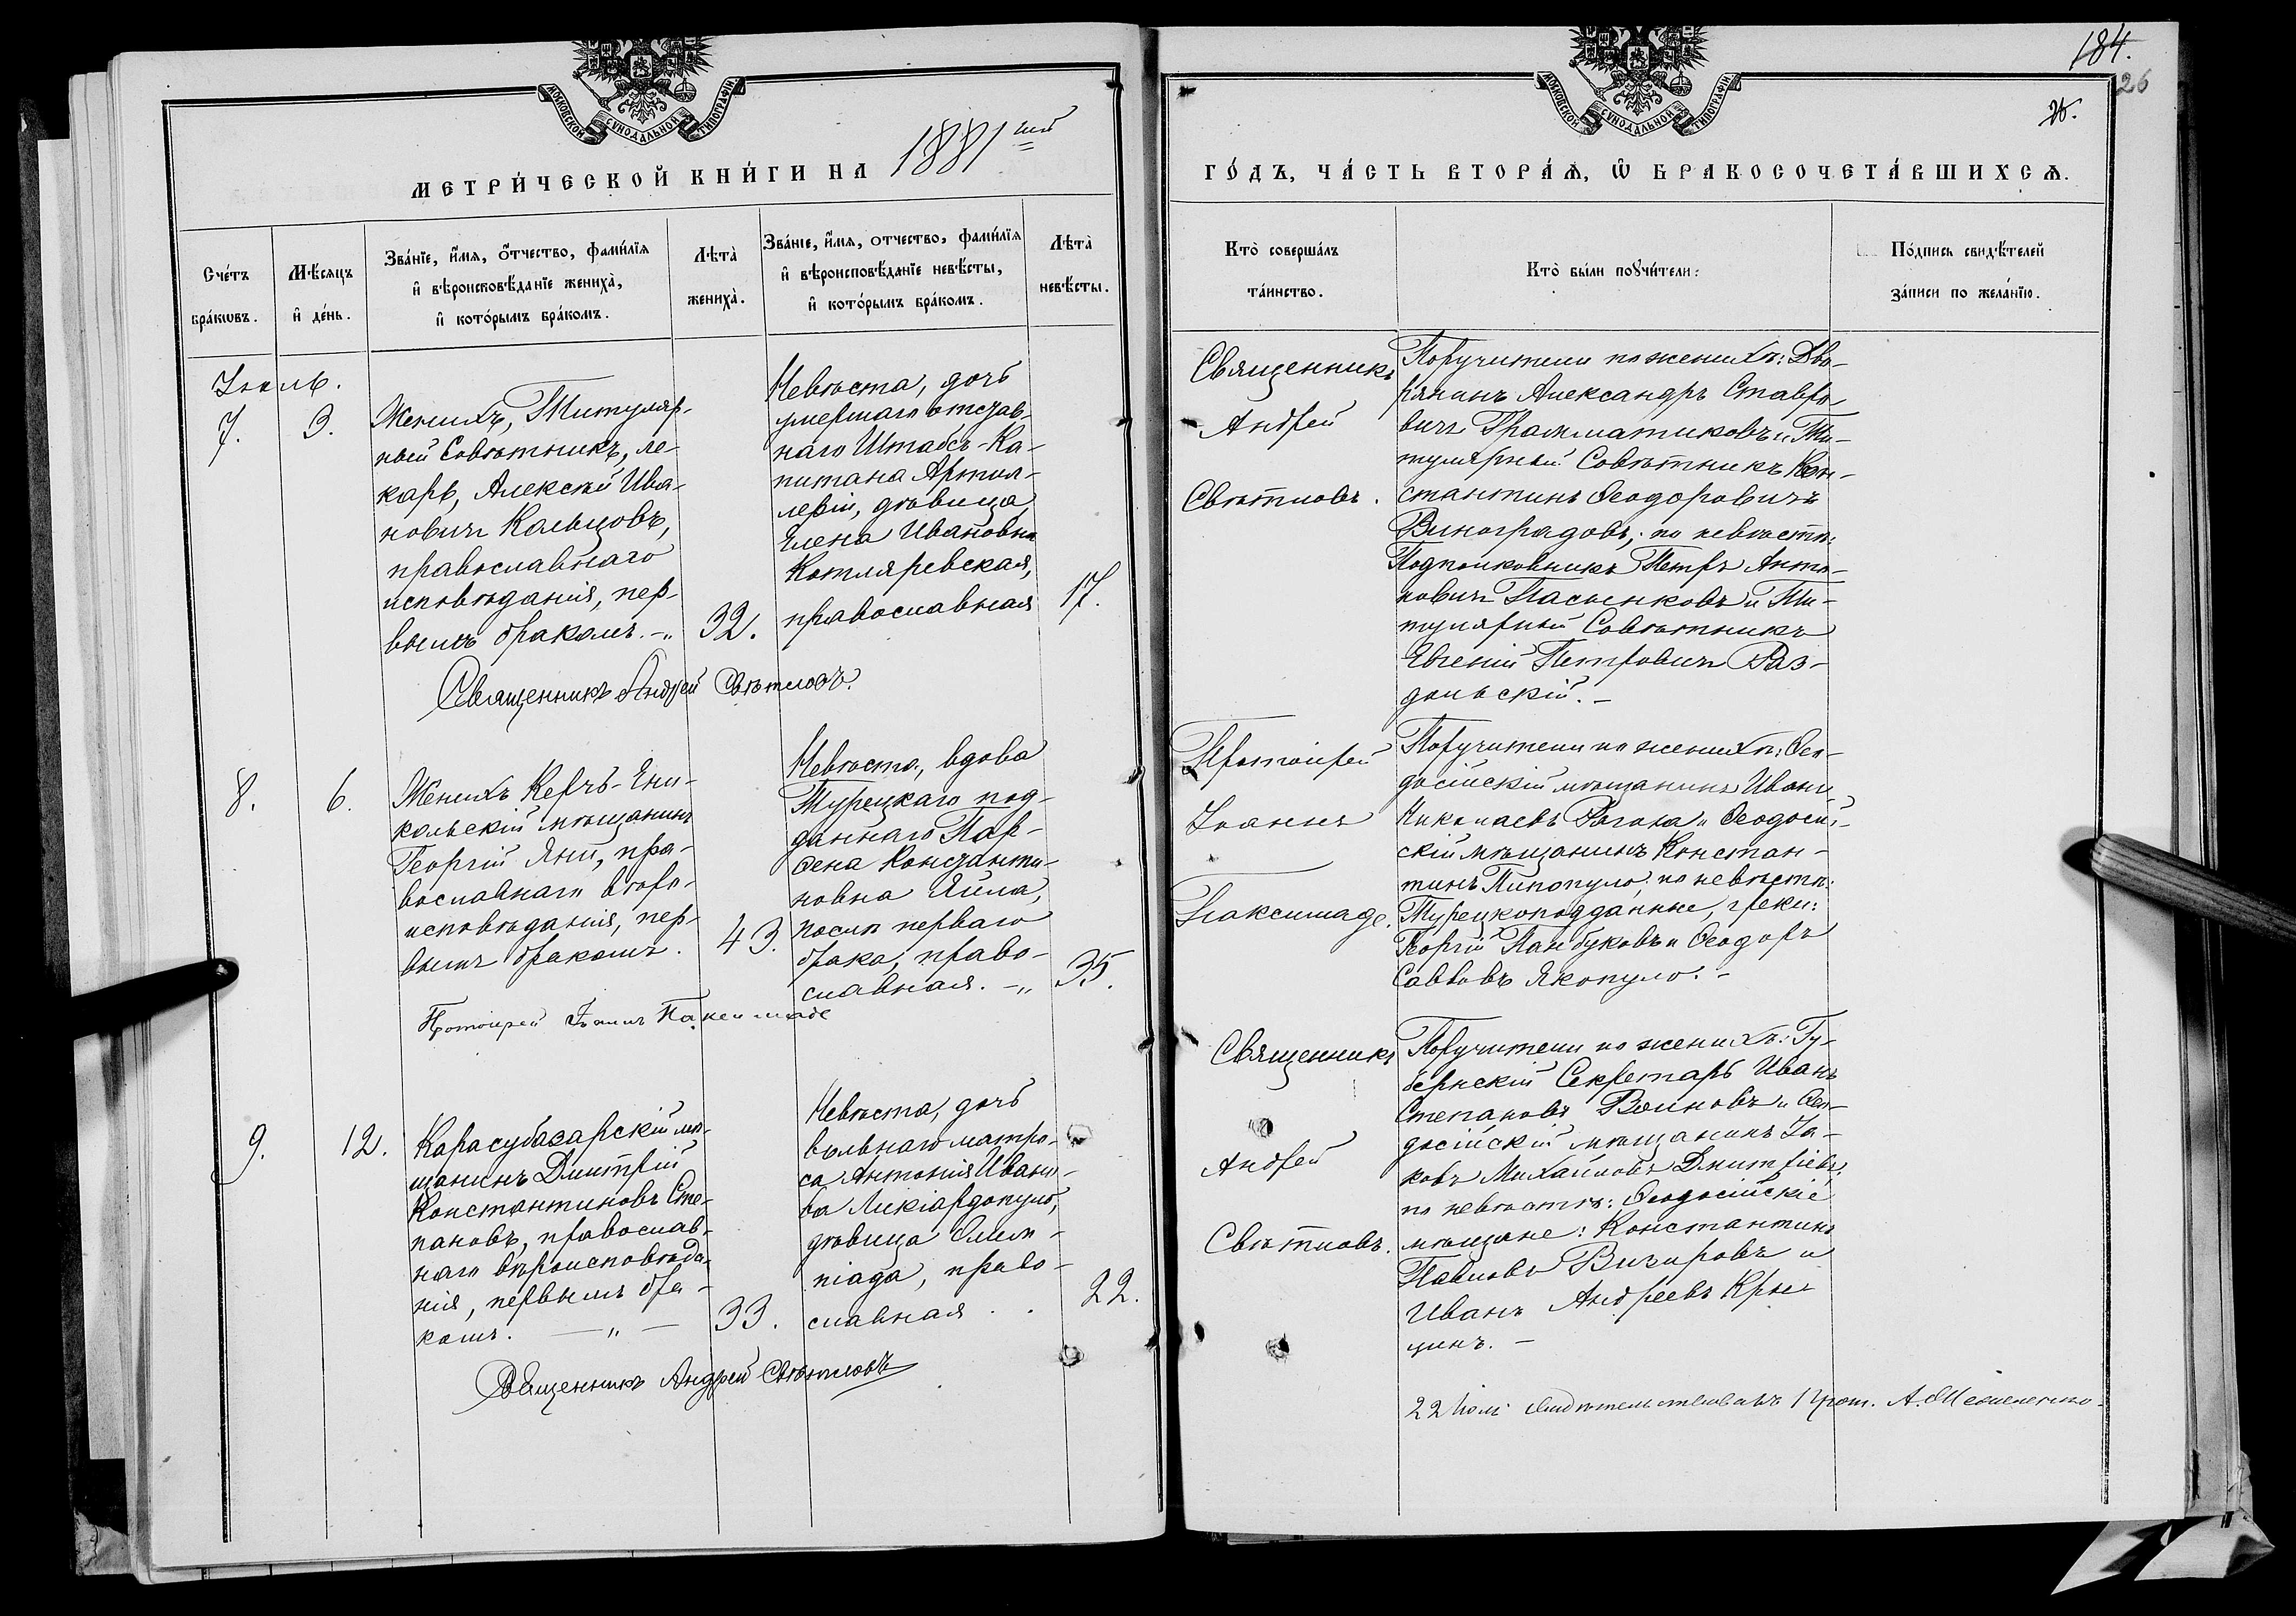 МОСКОВСКОЙ СѴНОДАЛЬНОЙ ТИПОГРАФІИ
МЕТРИ́ЧЕСКОЙ КНИ́ГИ НА 1881 ый
Сче́тъ бра́кѡвъ.
Мѣ́сяцъ и҆ де́нь.
Зва́нїе, и҆́мѧ, ѻ҆́тчество, фами́лїѧ
и҆ вѣроисповѣ́данїе жениха̀,
и҆ кото́рымъ бра́комъ.
Лѣта̀ жениха̀.
Зва́нїе, и҆́мѧ, отчество, фами́лїѧ
и҆ вѣроисповѣ́данїе невѣ́сты,
и҆ кото́рымъ бра́комъ.
Лѣта̀ невѣ́сты.
Іюль.
7.
3.
Женихъ, Титуляр-
ный Совѣтникъ, ле-
карь, Алексѣй Ива-
новичъ Кальцовъ,
православнаго
исповѣданія, пер-
вымъ бракомъ. -„
32.
Невѣста, дочь
умершаго отстав-
наго Штабсъ-Ка-
питана Артил-
леріи, дѣвица
Елена Ивановна
Котляревская,
православная
17.
Священникъ Андрей Свѣтловъ.
8.
6.
Женихъ Керчь-Ени-
кольскій мѣщанинъ
Георгій Яни, пра-
вославнаго вѣро-
исповѣданія, пер-
вымъ бракомъ.
43.
Невѣста, вдова
Турецкаго под-
даннаго Пар-
ѳена Константи-
новна Яйла,
послѣ перваго
брака, право-
славная. -„
35.
Протоіерей Іоаннъ Паксимаде
9.
12.
Карасубазарскій мѣ-
щанинъ Дмитрій
Константиновъ Сте-
пановъ, православ-
наго вѣроисповѣда-
нія, первымъ бра-
комъ. — „ —
33.
Невѣста, дочь
вольнаго матро-
са Антонія Ивано-
ва Ликіардопуло,
дѣвица Олим-
піада, право-
славная . .
22.
Священникъ Андрей Свѣтловъ
184.
26
26.
МОСКОВСКОЙ СѴНОДАЛЬНОЙ ТИПОГРАФІИ
ГО́ДЪ, ЧА́СТЬ ВТОРА́Ѧ, Ѡ҆ БРАКОСОЧЕТА́ВШИХСѦ.
Кто̀ соверша́лъ та́инство.
Кто̀ бы́ли поꙋчи́тели:
По́дпись свидѣ́телей за́писи по жела́нїю.
Священникъ
Андрей
Свѣтловъ.
Поручители по женихѣ: Дво-
рянинъ Александръ Ставро
вичъ Грамматиковъ и Ти-
тулярный Совѣтникъ Кон-
стантинъ Ѳеодоровичъ
Виноградовъ; по невѣстѣ:
Подполковникъ Петръ Анто-
новичъ Пасьенковъ и Ти-
тулярный Совѣтникъ
Евгеній Петровичъ Раз-
дольскій. –
Протоіерей
Іоаннъ
Паксимаде.
Поручители по женихѣ: Ѳео-
досійскій мѣщанинъ Иванъ
Николаевъ Рогона и Ѳеодосій-
скій мѣщанинъ Констан-
тинъ Пипопуло; по невѣстѣ:
Турецкоподданные, греки:
Георгій Панбуковъ и Ѳеодоръ
Саввовъ Якопуло. –
Священникъ
Андрей
Свѣтловъ.
Поручители по женихѣ: Гу-
бернскій Секретарь Иванъ
Степановъ Воиновъ и Ѳео-
досійскій мѣщанинъ Іа-
ковъ Михайловъ Дмитріевъ;
по невѣстѣ: Ѳеодосійскіе
мѣщане: Константинъ
Павловъ Визировъ и
Иванъ Андреевъ Кры
цинъ. –
22 Іюля свидѣтельствовалъ Прот. А.